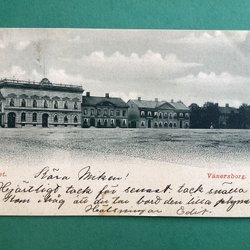 et. Vänersborg.
Kära Mcken!
Hjärtligt tack för senast. tack snälla
som Mig att du tar bort den lilla plyms
Hälsningar Edit